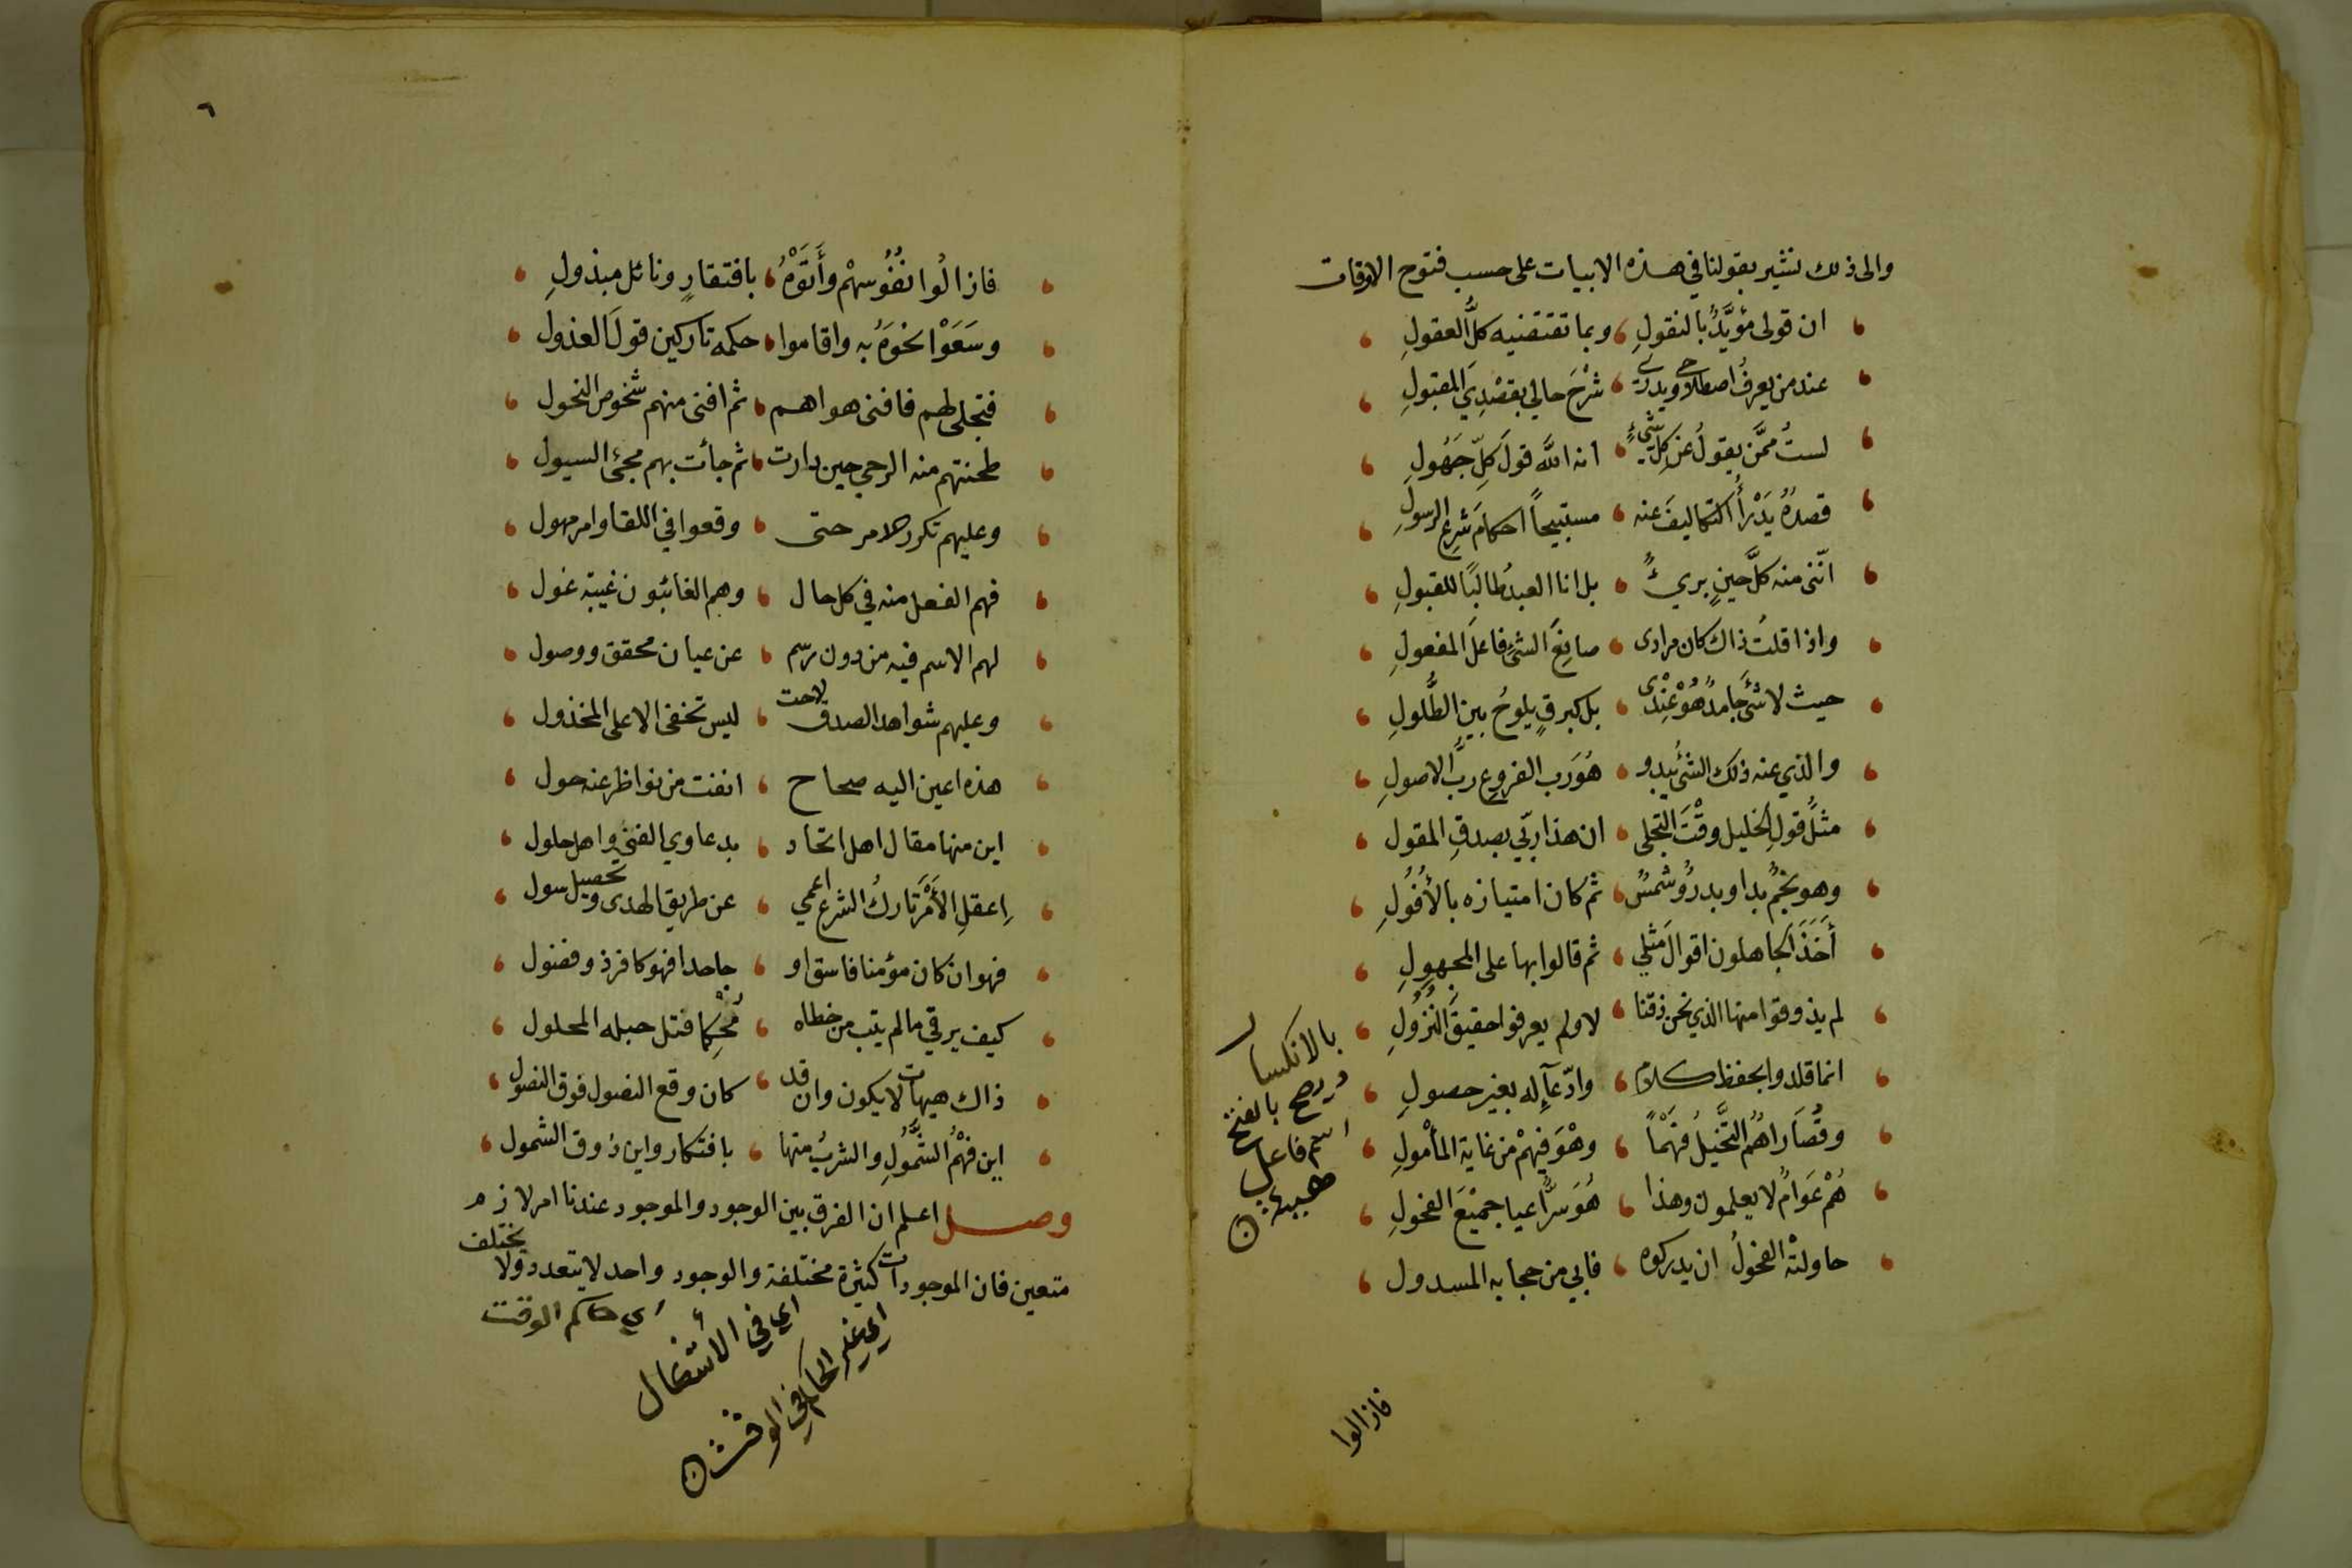 والى ذلك نشير بقولنا في هذه الابيات على حسب فتوح الاوقات
ان قولى مؤيَّدٌ بالنقولِ وبما تقتضيه كلُّ العقولِ
عند من يعرفُ اصطلاحى ويدرى شَرْحَ حالي بقصْدِيَ المقبولِ
لستُ ممَّن يقولُ عن كلِّ شيءٍ انه اللَّه قولَ كلِّ جَهُولِ
قصدُهُ يَدْرَأُ التكاليفَ عنه مستبيحاً احكامَ شرعِ الرسولِ
انّنى منه كلَّ حينٍ بريءٌ بل انا العبدُ طالبًا للقبولِ
واذا قلتُ ذاك كان مرادى صانِعَ الشئِ فاعلَ المفعولِ
حيث لا شئَ جَامدٌ هُوْ عِنْدى بل كبرقٍ يلوحُ بين الطُّلولِ
والذي عنه ذلك الشئ يبدو هُوَ رب الفروعِ ربُّ الاصولِ
مثلُ قولِ الخليل وقْتَ التجلى ان هذا ربّي بصدقِ المقول
وهو نجمٌ بدا وبدرٌ وشمسٌ ثم كان امتيازه بالأُفُولِ
أَخَذَ الجاهلون اقوالَ مثلي ثم قالوا بها على المجهولِ
لم يذوقوا منها الذي نحن ذقنا لا ولم يعرفوا حقيقَ النُزُولِ
انما قلدوا بحفظ كلام وادّعآءٍ له بغير حصولِ
وقُصَاراهُمُ التَّخَيُّلُ فَهْماً وهْوَ فيهمْ من غاية المأمولِ
هُمْ عَوَامٌ لا يعلمون وهذا هُوَ سرٌّ اعيا جميْعَ الفحولِ
حاولتْهُ الفحولُ ان يدركوه فابي من حجابه المسدول
بالانكسار
ويصح بالفتح
اسم فاعل
فازالوا
٦
فازالُوا نُفُوسهمْ وأَتَوْهُ بافتقارٍ ونائل مبذولِ
وسَعَوْا نحوَهُ به واقاموا حكمه تاركين قولَ العذول
فتجلى لهم فافنى هواهم ثم افنى منهم شخوص النحول
طحنتهم منه الرحى حين دارت ثم جأت بهم مجئ السيول
وعليهم تكرر الامر حتى وقعوا في اللقا وامر مهول
فهم الفعل منه في كل حال وهم الغائبون غيبة غول
لهم الاسم فيه من دون رسم عن عيان محقق ووصول
وعليهم شواهد الصدق لاحت ليس تخفى الا على المخذول
هذه اعين اليه صحاح انفت من نواظر عنه حول
اين منها مقال اهل اتحاد بدعاوي الفنى واهل حلول
اِعقلِ الأَمْرَ تاركُ الشرع اعمي عن طريق الهدى وتحصيل سول
فهو ان كان مؤمنا فاسق او جاحدا فهو كافر ذو فضول
كيف يرقي ما لم يتب من خطاه مُحْكِما فتل حبله المحلول
ذاك هيهات لا يكون وان قد كان وقع النصول فوق النصول
اين فهْمُ الشَّمُولِ والشربُ منها بافتكار واين ذوق الشمول
وصل اعلم ان الفرق بين الوجود والموجود عندنا امر لازم
متعين فان الموجودات كثيرة مختلفة والوجود واحد لا يتعدد ولا يختلف
اي حاكم الوقت
اي في الأشغال
اي غير الحاكم في الوقت